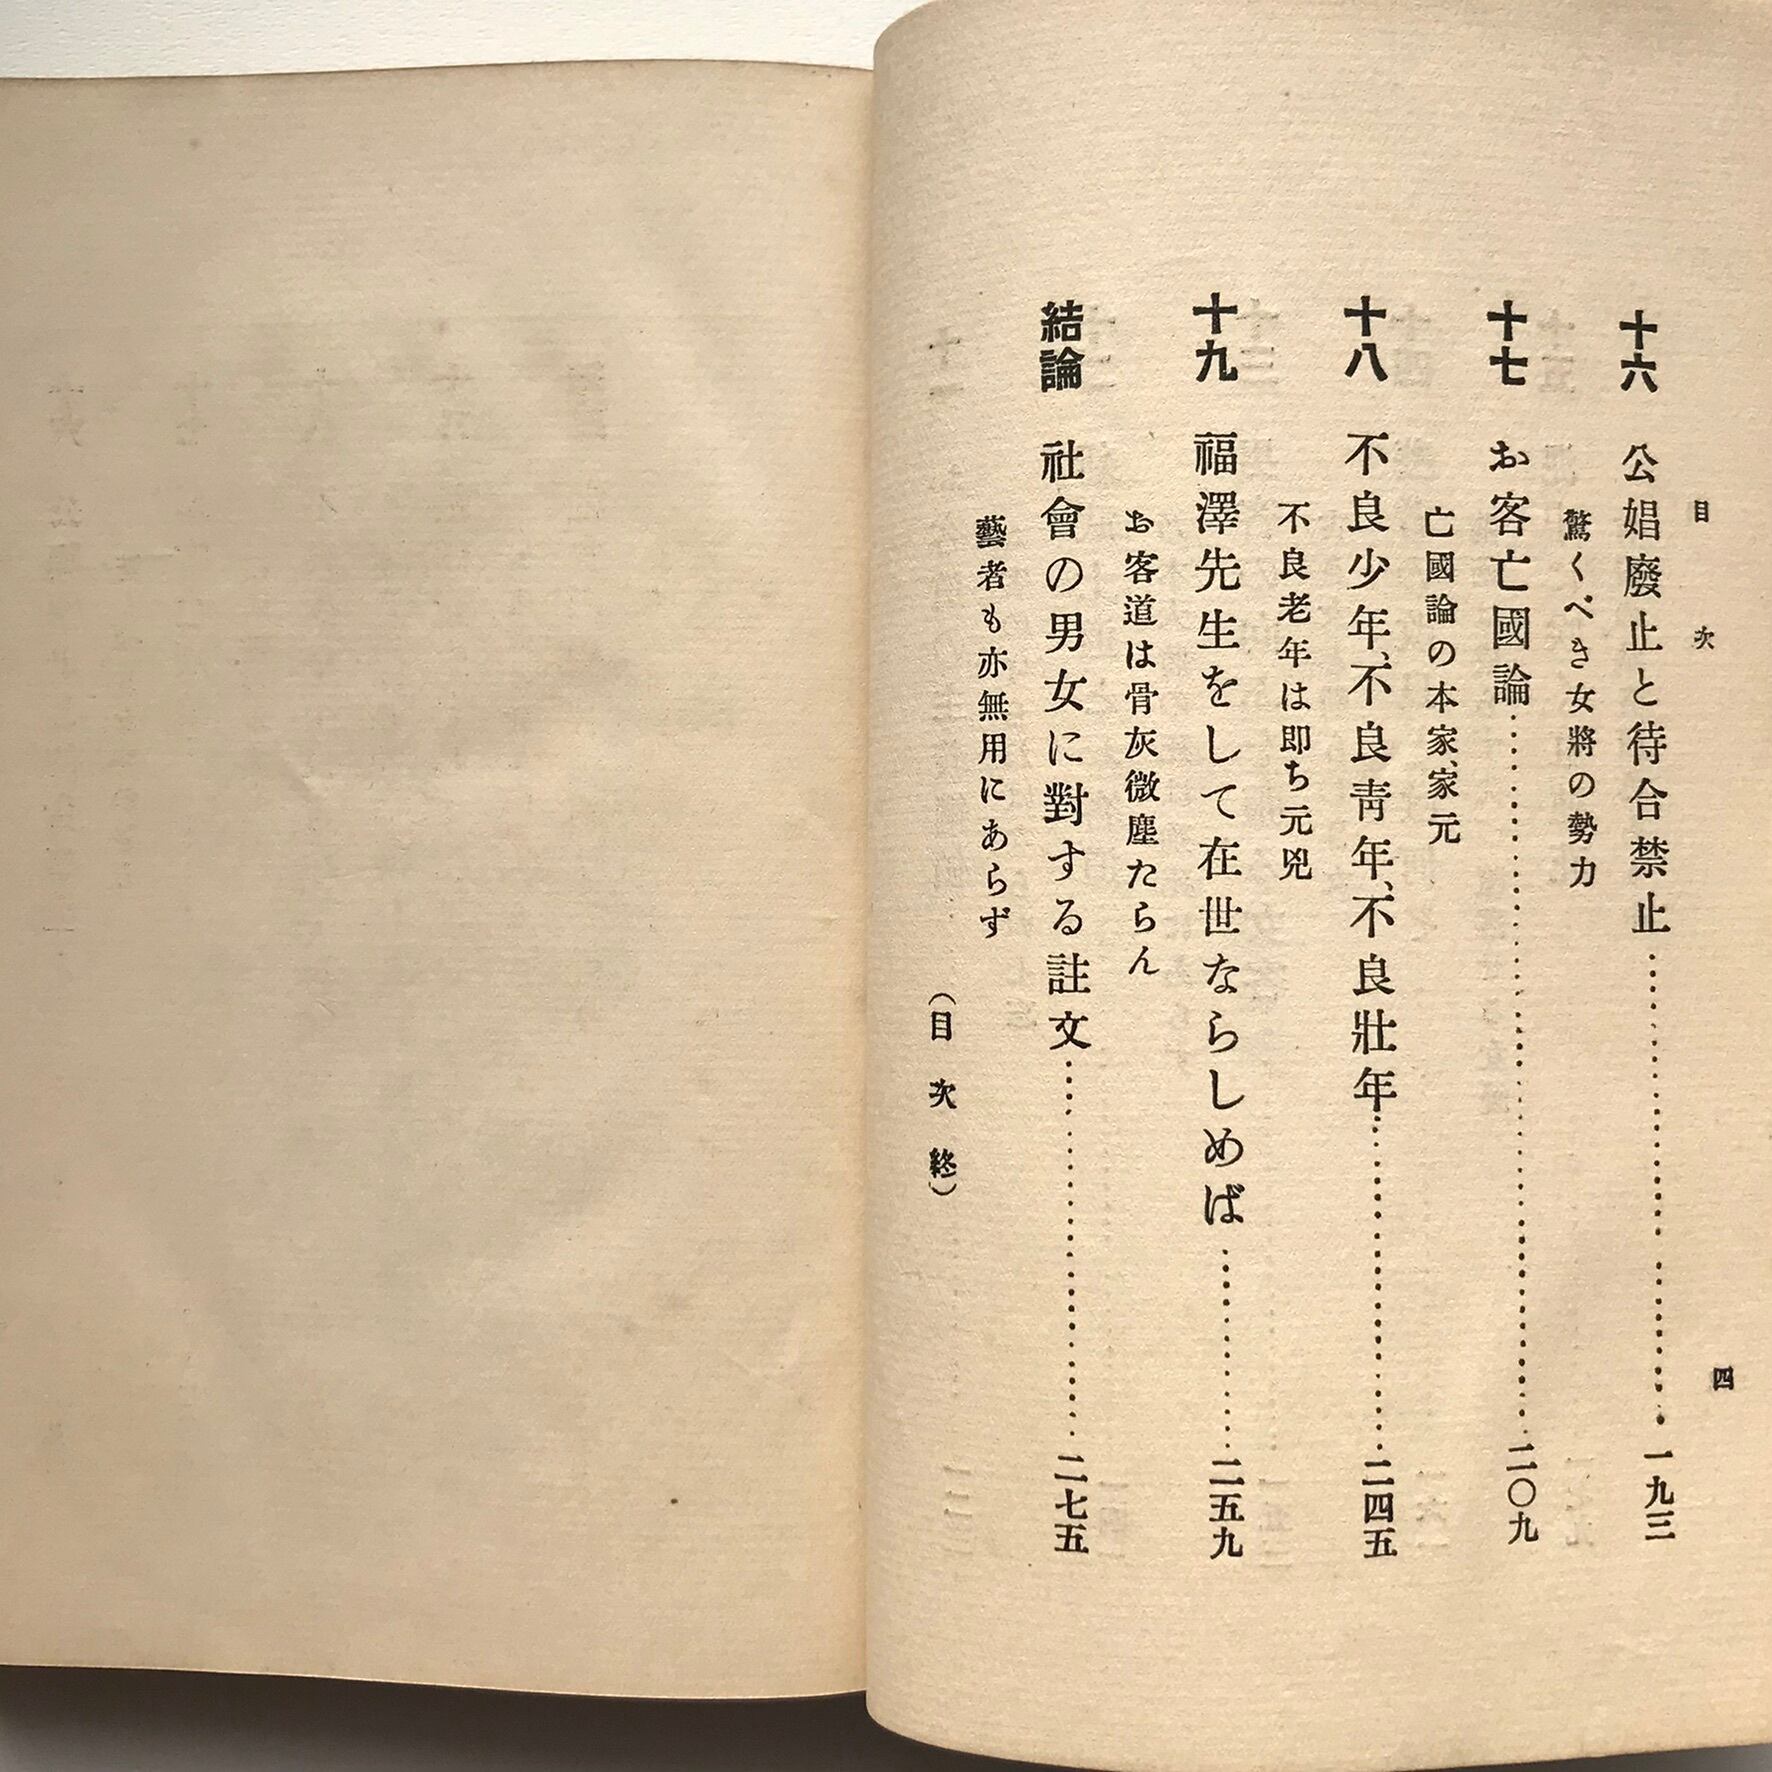 目次
四
十六 公娼廢止と待合禁止 一九三
驚くべき女將の勢力
十七 お客亡國論 二〇九
亡國論の本家、家元
十八 不良少年、不良靑年、不良壯年 二四五
不良老年は卽ち元兇
十九 福澤先生をして在世ならしめば 二五九
お客道は骨灰微塵たらん
結論 社會の男女に對する註文 二七五
藝者も亦無用にあらず
（目次終）